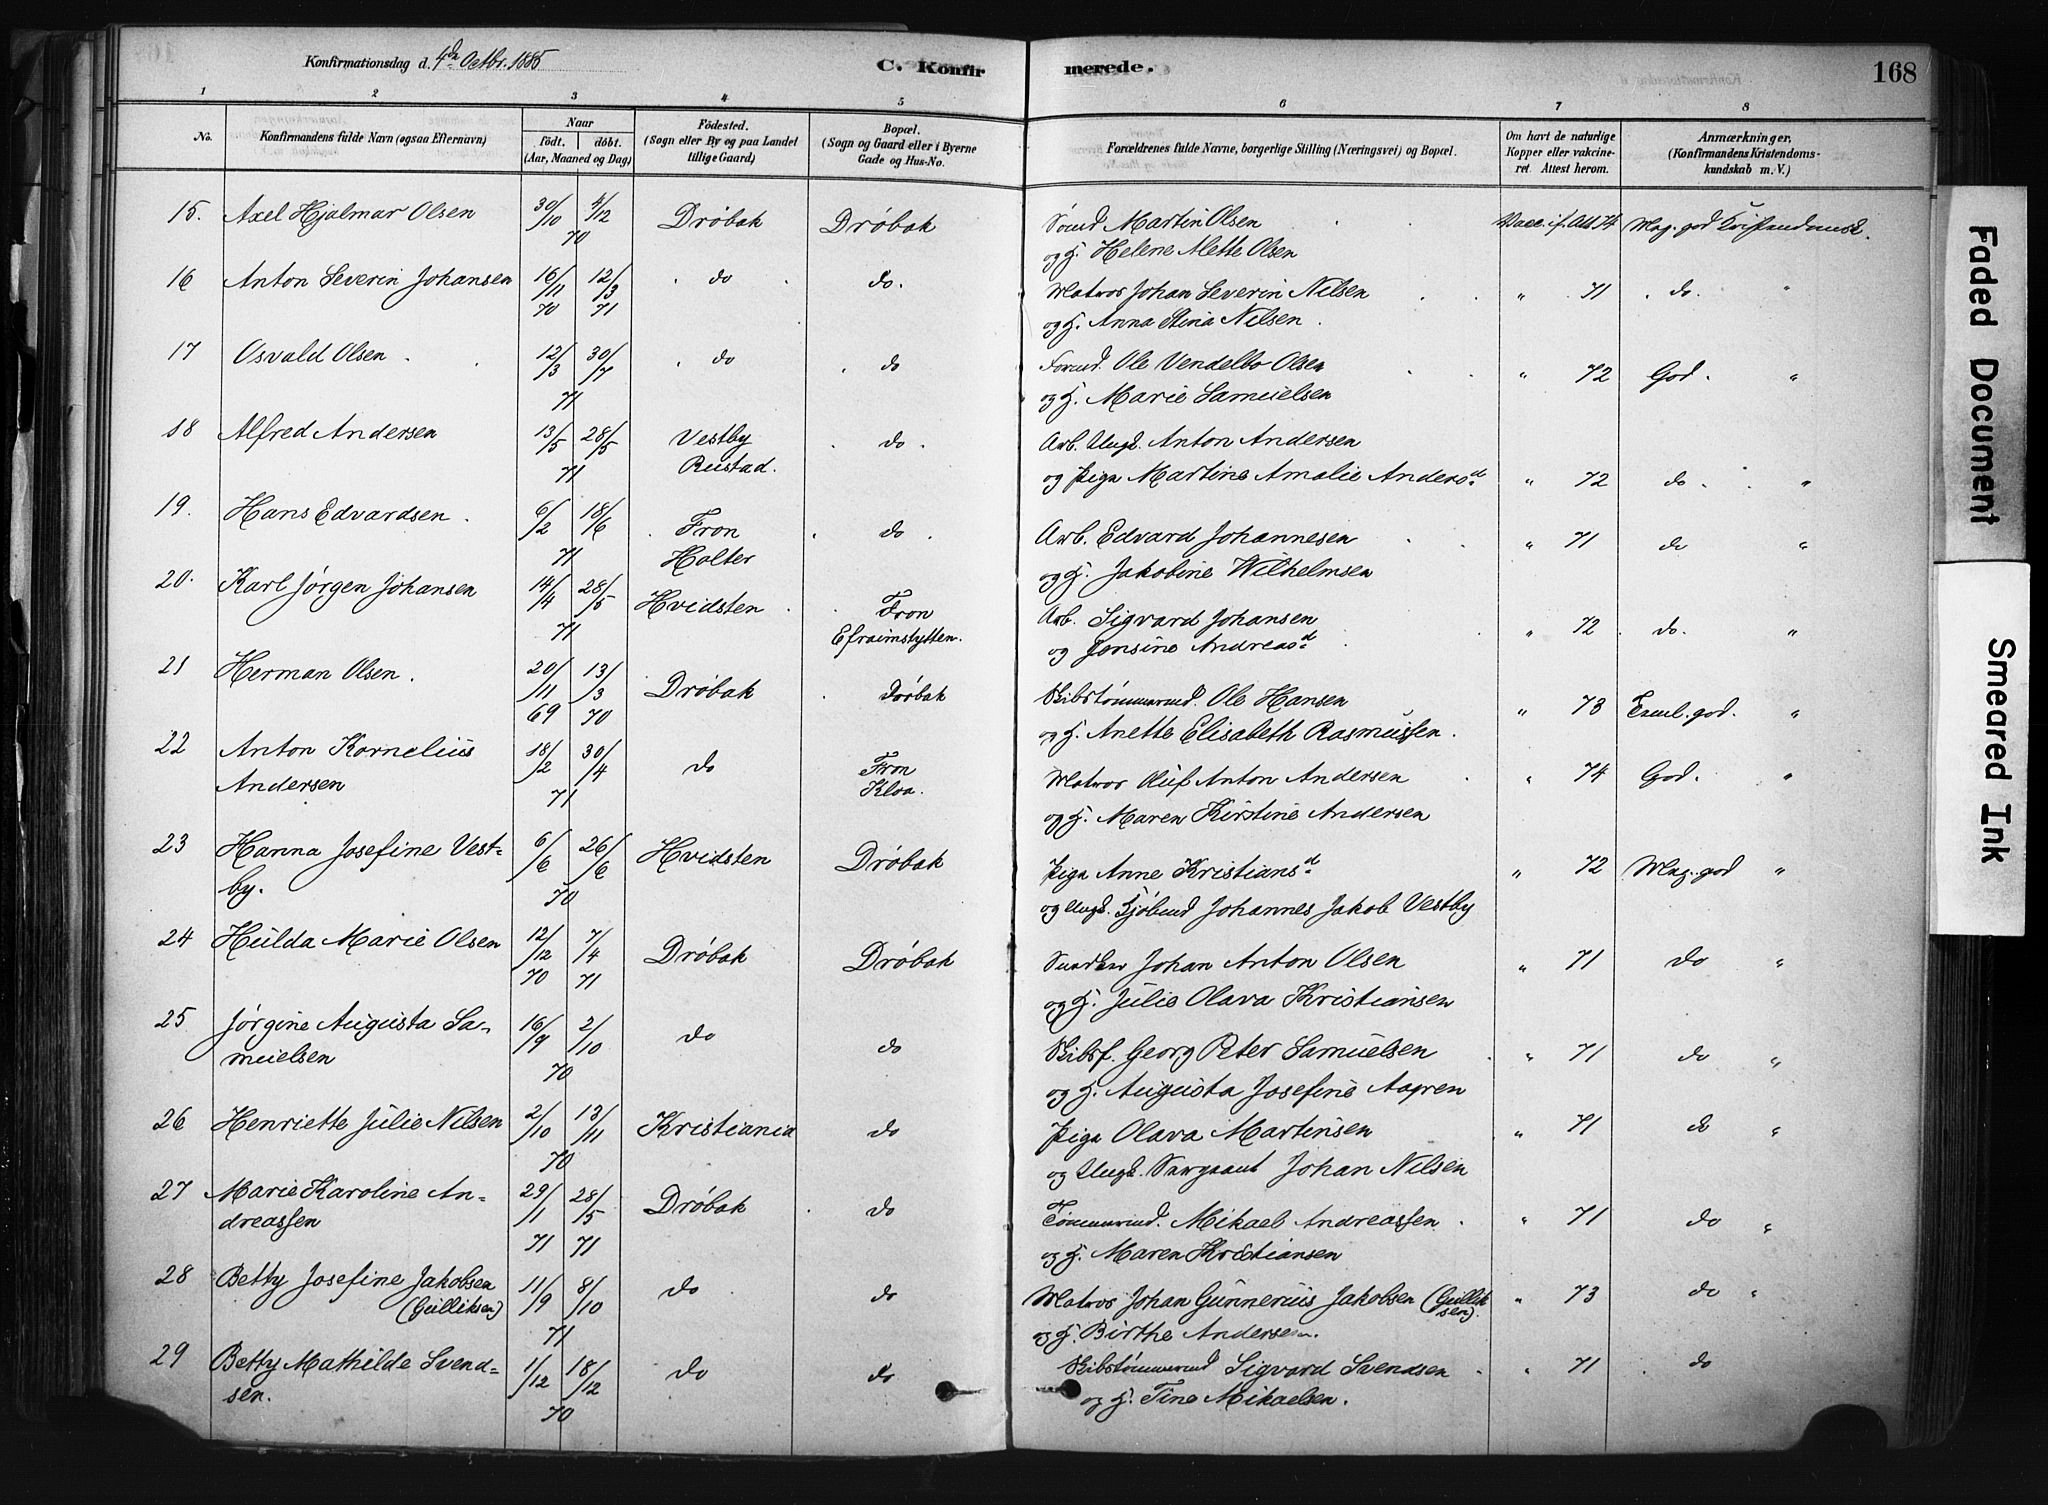 Konfirmationsdag d. 4de Octbr. 1885
C. Konfirmerede.
168
1 2 3 4 5 6 7 8
No.
Konfirmandens fulde Navn (ogsaa Efternavn)
Naar
födt. döbt.
(Aar, Maaned og Dag)
Födested.
(Sogn eller By og paa Landet
tillige Gaard)
Bopæl.
(Sogn og Gaard eller i Byerne
Gade og Hus-No.
Forældrenes fulde Navne, borgerlige Stilling (Næringsvei) og Bopæl.
Om havt de naturlige
Kopper eller vakcine-
ret Attest herom.
Anmærkninger,
(Konfirmandens Kristendoms-
kundskab m. V.)
15. Axel Hjalmar Olsen 30/10 4/12 70 Dröbak Dröbak Martin Olsen Vacc. if. Att 74 Mag. god
og H. Helene Mette Olsen
16 Anton Severin Johansen 16/11 70 12/3 71 do do. Matros Johan Severin Nilsen " 71 do. "
og H. Anna Stina Nilsen
17 Osvald Olsen 12/3 30/7 71 do do Ole Vendelbo Olsen " 72 God. "
og H. Marie Samuelsen
18 Alfred Andersen 13/5 28/5 71 Vestby Rustad. do. Arb. Ungk. Anton Andersen
og Pige Martine Amalie Andersd " 72 do. "
19. Hans Edvardsen. 6/2 18/6 71 Fron Holter do. Arb. Edvard Johannesen " 71 do "
og H. Jakobine Wilhelmsen
20. Karl Jørgen Johansen 14/4 28/5 71 Hvidsten Fron Efraimstytten. Arb. Sigvard Johansen " 72 do. "
og Jonsine Andreasd
21 Herman Olsen. 20/11 69 13/3 70 Dröbak Dröbak Skibstømmermd. Ole Hansen " 73 god. "
og H. Anette Elisabeth Rasmussen.
22 Anton Kornelius Andersen 18/2 30/4 71 do Fron Kloa. Matros Oluf Anton Andersen " 74 God. "
og H. Maren Kirstine Andersen
23 Hanna Josefine Vest-
by. 6/6 26/6 70 Hvidsten Dröbak Pige Anne Kristiansd " 72 Mag. god "
og Ungk. Johannes Jakob Vestby
24 Hulda Marie Olsen 12/12 70 7/4 71 Dröbak Dröbak Johan Anton Olsen " 71 do "
og H. Julie Olava Kristiansen
25 Jørgine Augusta Sa-
muelsen 16/9 2/10 70 do do Skibsf. Georg Peter Samuelsen " 71 do "
og H. Augusta Josefine Aagren
26 Henriette Julie Nilsen 2/10 13/11 70 Kristiania do Pige Olava Martinsen " 71 do "
og Ungk. Johan Nilsen
27 Marie Karoline An-
dreassen 29/1 71 28/5 71 Dröbak do Tømmermd. Mikael Andreassen " 71 do "
og H. Maren Kristiansen
28 Betty Josefine Jakobsen
(Gulliksen) 11/9 8/10 71 do do Matros Johan Gunnerius Jakobsen (Gullik
sen). " 73 do "
og H. Birthe Andersen.
29 Betty Mathilde Svend-
sen. 1/12 18/12 70 do do Skibstømmermd Sigvard Svendsen " 71 do
og H. Tine Mikaelsen.
Faded Document
Smeared Ink